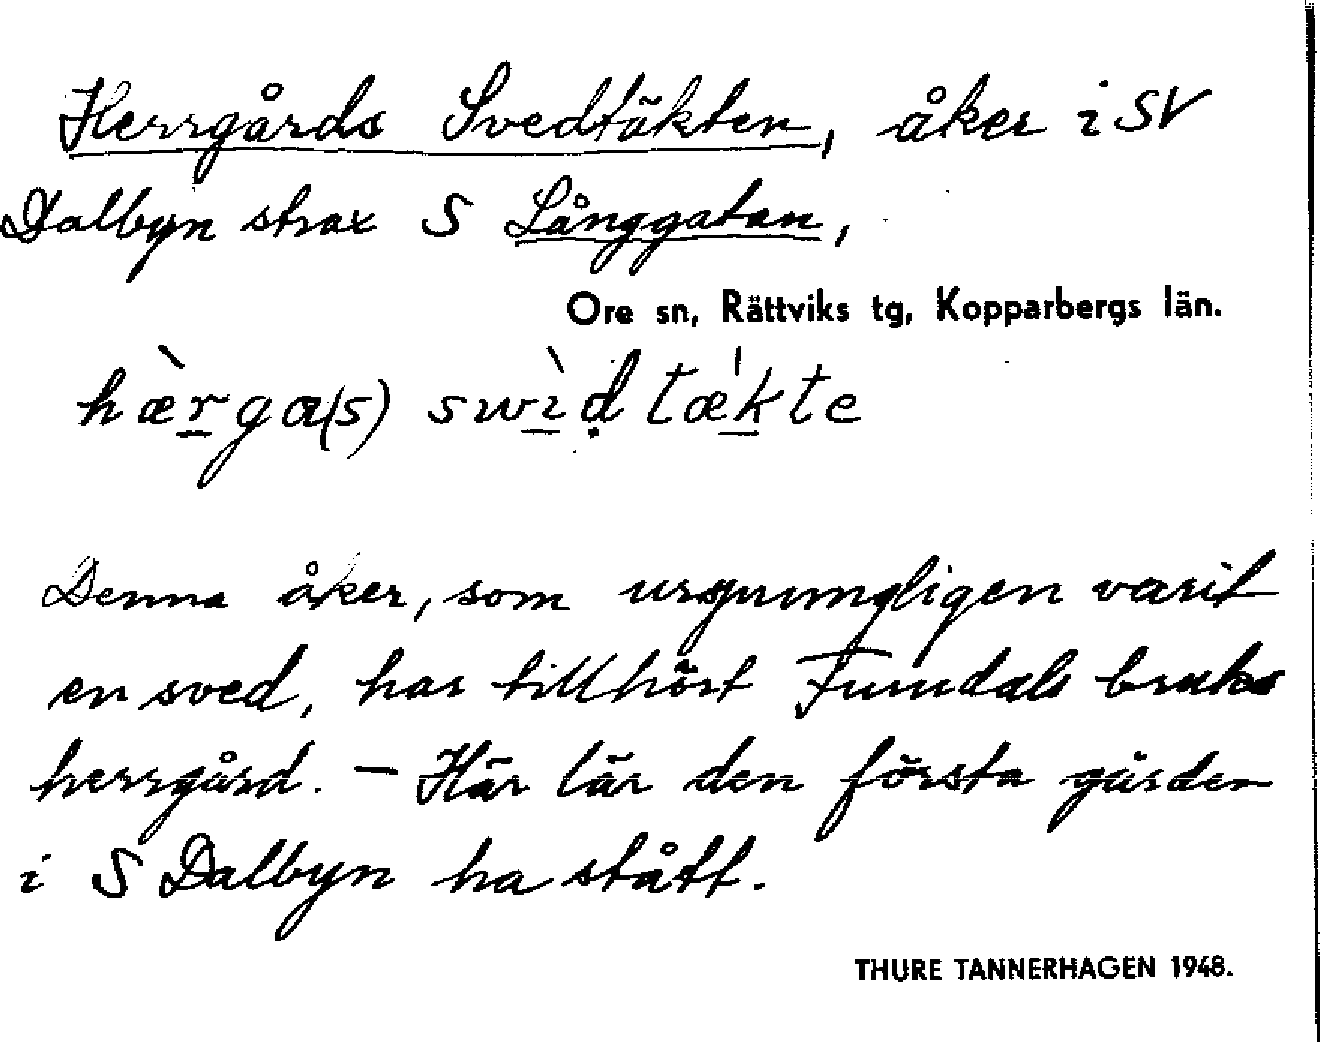 Herrgårds Svedtäkten, åker i SV
Dalbyn strax S Långgatan,
Ore sn, Rättviks tg, Kopparbergs län.
hæ̀r̲ga(s) swì̲ḍtæ̍k̲te
Denna åker, som ursprungligen varit
en sved, har tillhört Furudals bruks
herrgård. – Här lär den första gården
i S Dalbyn ha stått.
THURE TANNERHAGEN 1948.